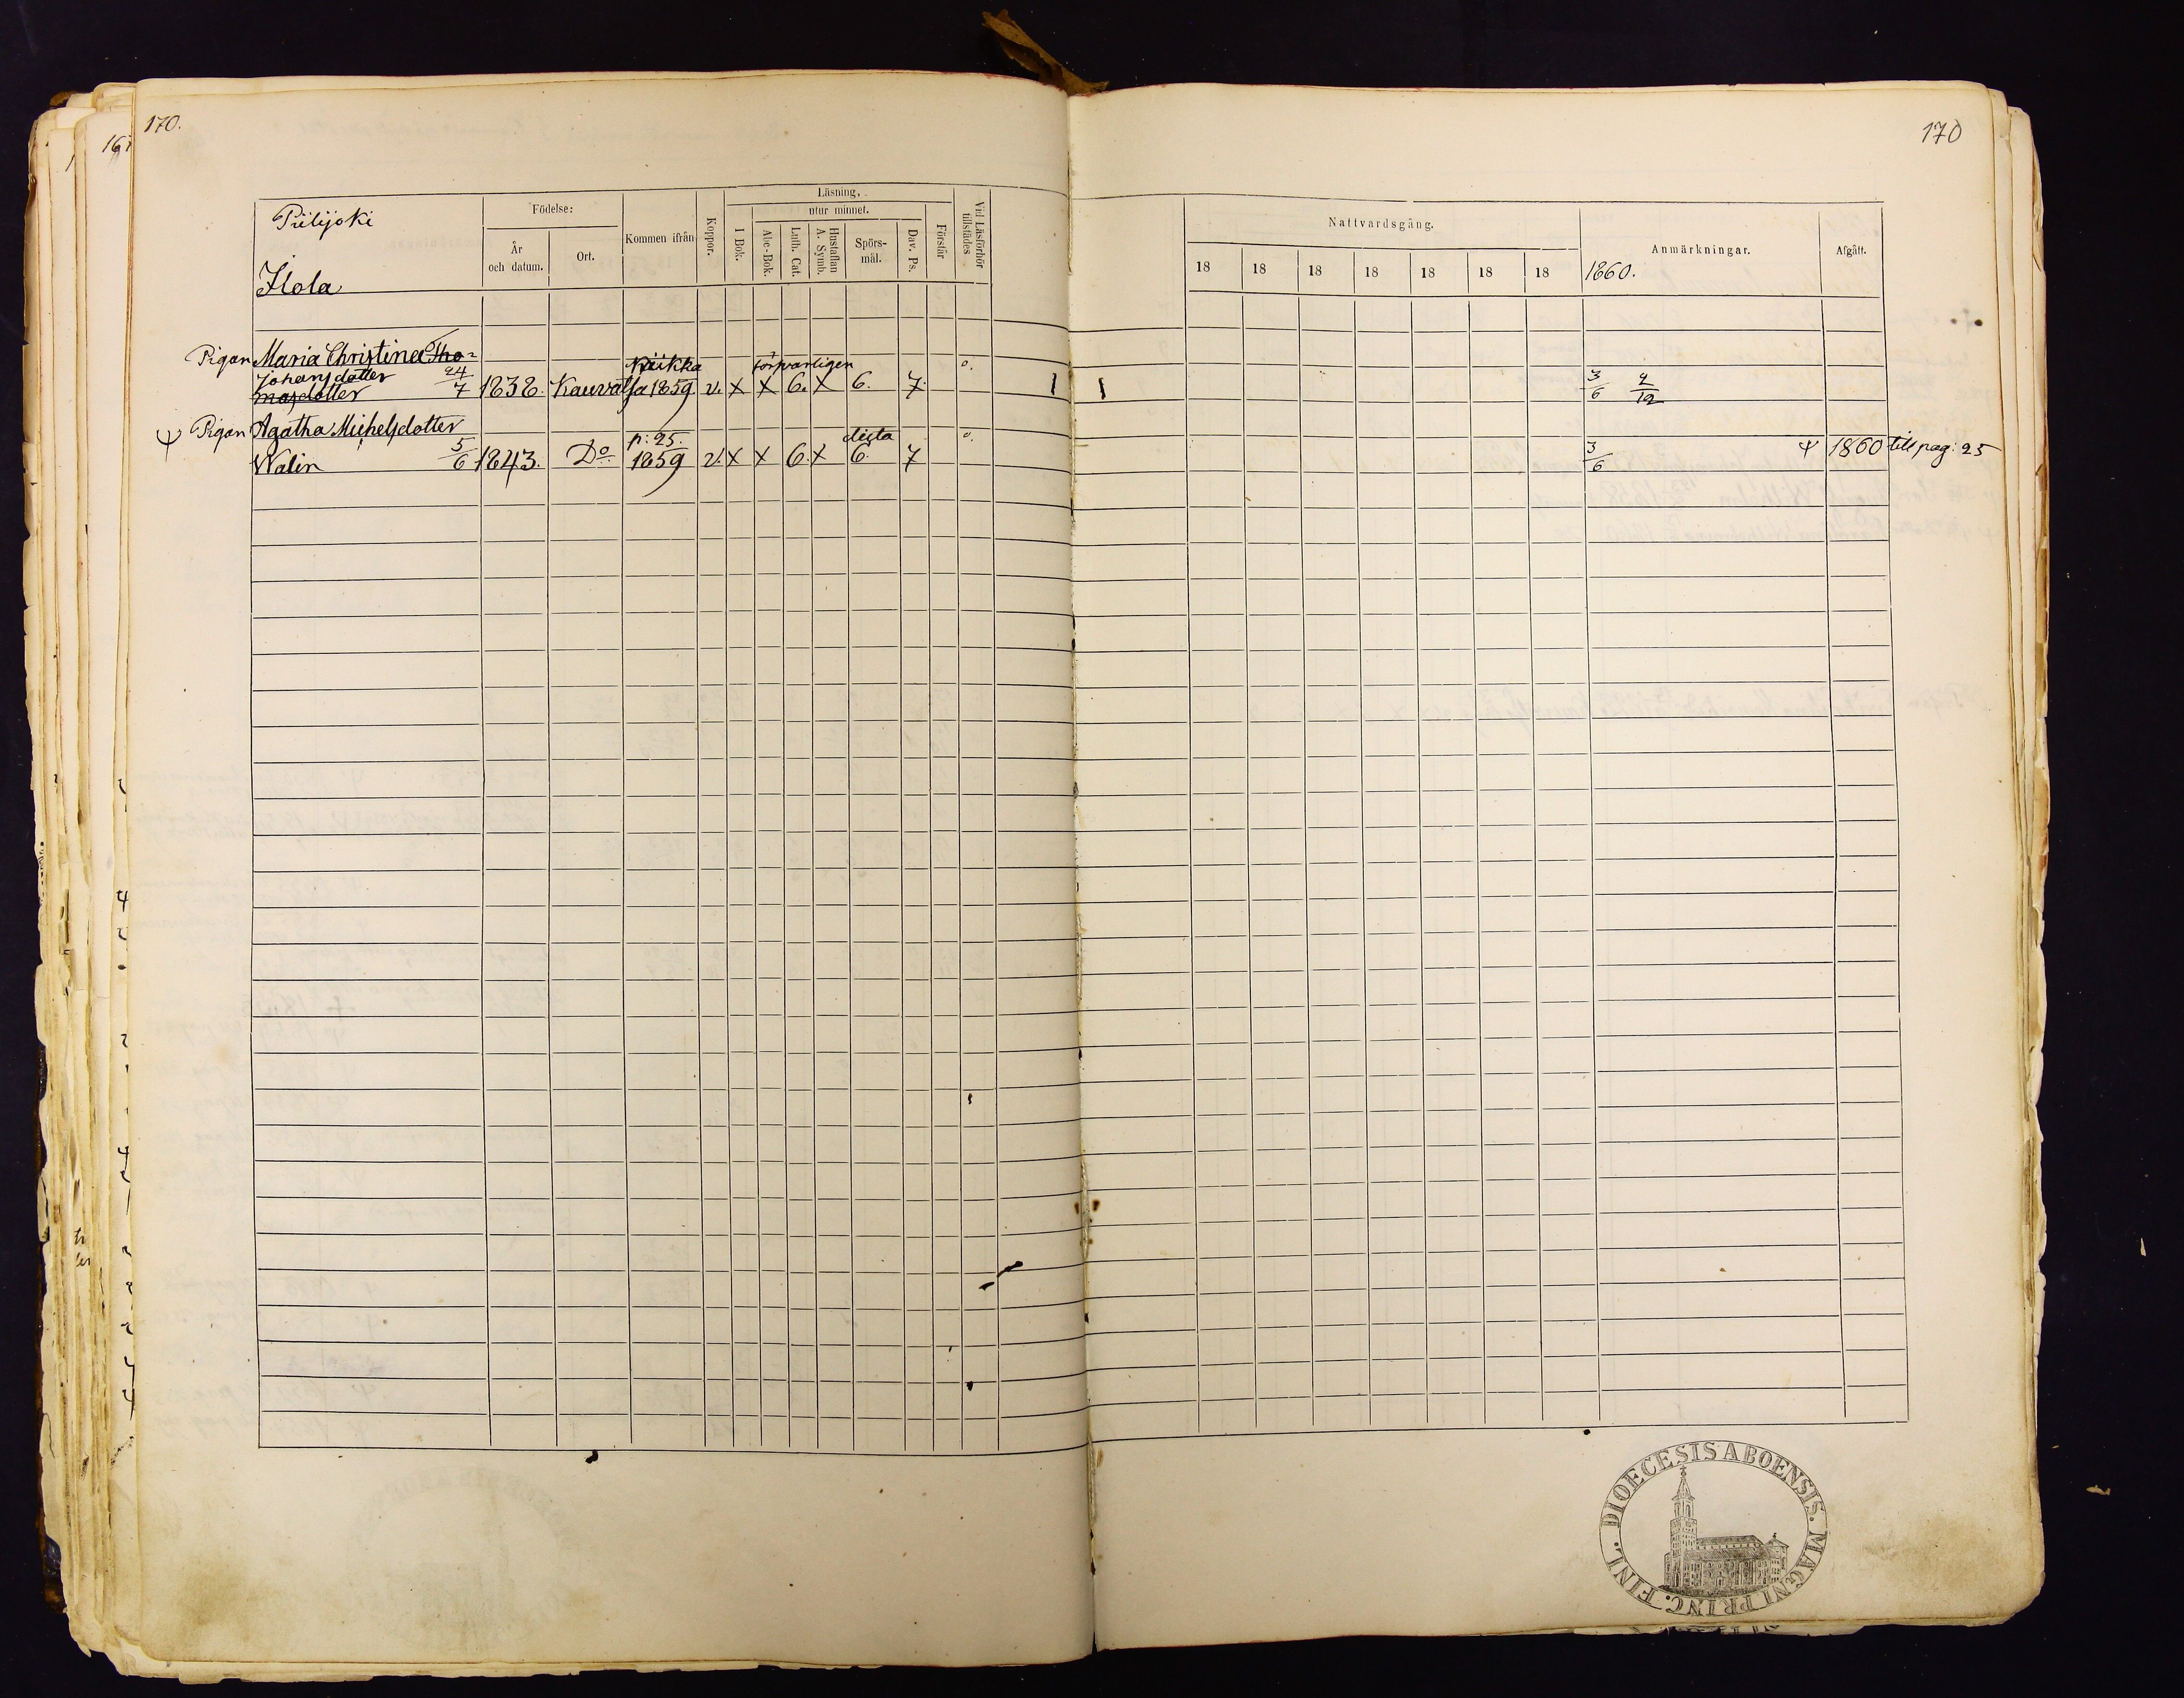 170.
170
161
Piilijoki
Ilola
Födelse:
År
och datum.
Ort.
Kommen ifrån
Koppor.
Läsning.
utur minnet.
I Bok.
Abc-Bok.
Luth. Cat.
Hustaflan
A. Symb.
Spörs-
mål.
Dav. Ps.
Förstår
Vid Läsförhör
tillstädes
Nattvardsgång.
18 18 18 18 18 18 18
Anmärkningar.
1860.
Afgått.
Pigan Maria Christina Tho-
Johansdotter
masdotter 24/7 1838. Kauvatsa Kiikka 1859 v. x x 6. x 6. 7. o.
försvarligen
3/6 2/12
Ψ Pigan Agatha Michelsdotter
Walin 5/6 1843. Do p: 25. 1859 v. x x 6. x 6. 7 o.
dicta
3/6 Ψ 1860 till pag: 25
DIOECESIS ABOENSIS. MAGNI PRINC. FINL.